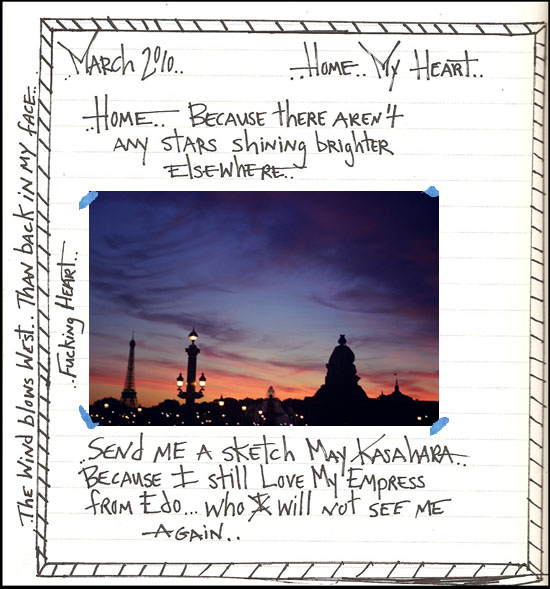 March 2010..
..Home.. My Heart..
..Home.. Because there aren't
any stars shining brighter
elsewhere..
..Fucking Heart..
..The Wind blows West.. Than back in my face..
..Send me a sketch May Kasahara..
Because I still Love My Empress
from Edo... who will not see me
again..